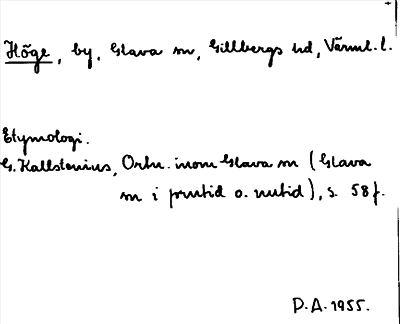 Höge, by, Glava sn, Gillbergs hd, Värml. l.
Etymologi.
G. Kallstenius, Ortn. inom Glava sn (Glava
sn i forntid o. nutid), s. 58 f.
P.A. 1955.